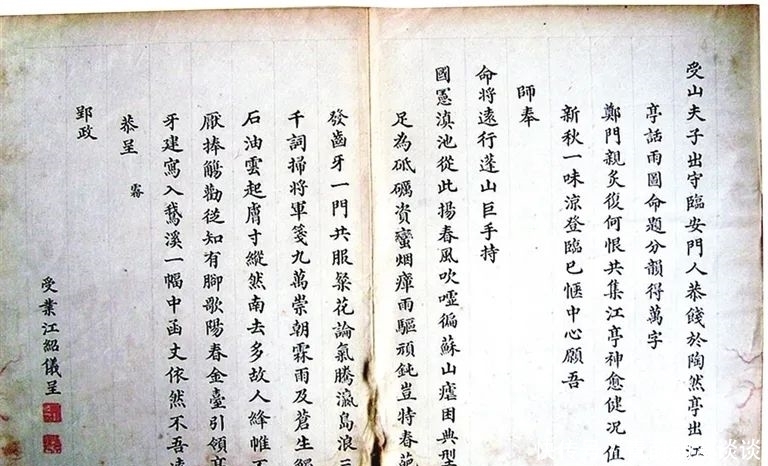 受山夫子出守臨安門人恭餞於陶然亭出江
亭話雨圖命題分韻得萬字
鄭門親炙復何恨共集江亭神愈健況值
新秋一味涼登臨已愜中心願吾
師奉
命將遠行蓬山巨手持
國憲滇池從此揚春風吹噓徧蘇山瘧困典型
足為砥礪資蠻烟瘴雨驅頑鈍豈特春葩
發齒牙一門共服粲花論氣騰瀛島浪三
千詞掃將軍箋九萬崇朝霖雨及蒼生觸
石油雲起膚寸縱然南去多故人絳帷不
厭捧觴勸從知有腳歌陽春金臺引領高
牙建寫入鵝溪一幅中函丈依然不吾遠
恭呈
霧
郢政
受業江紹儀呈